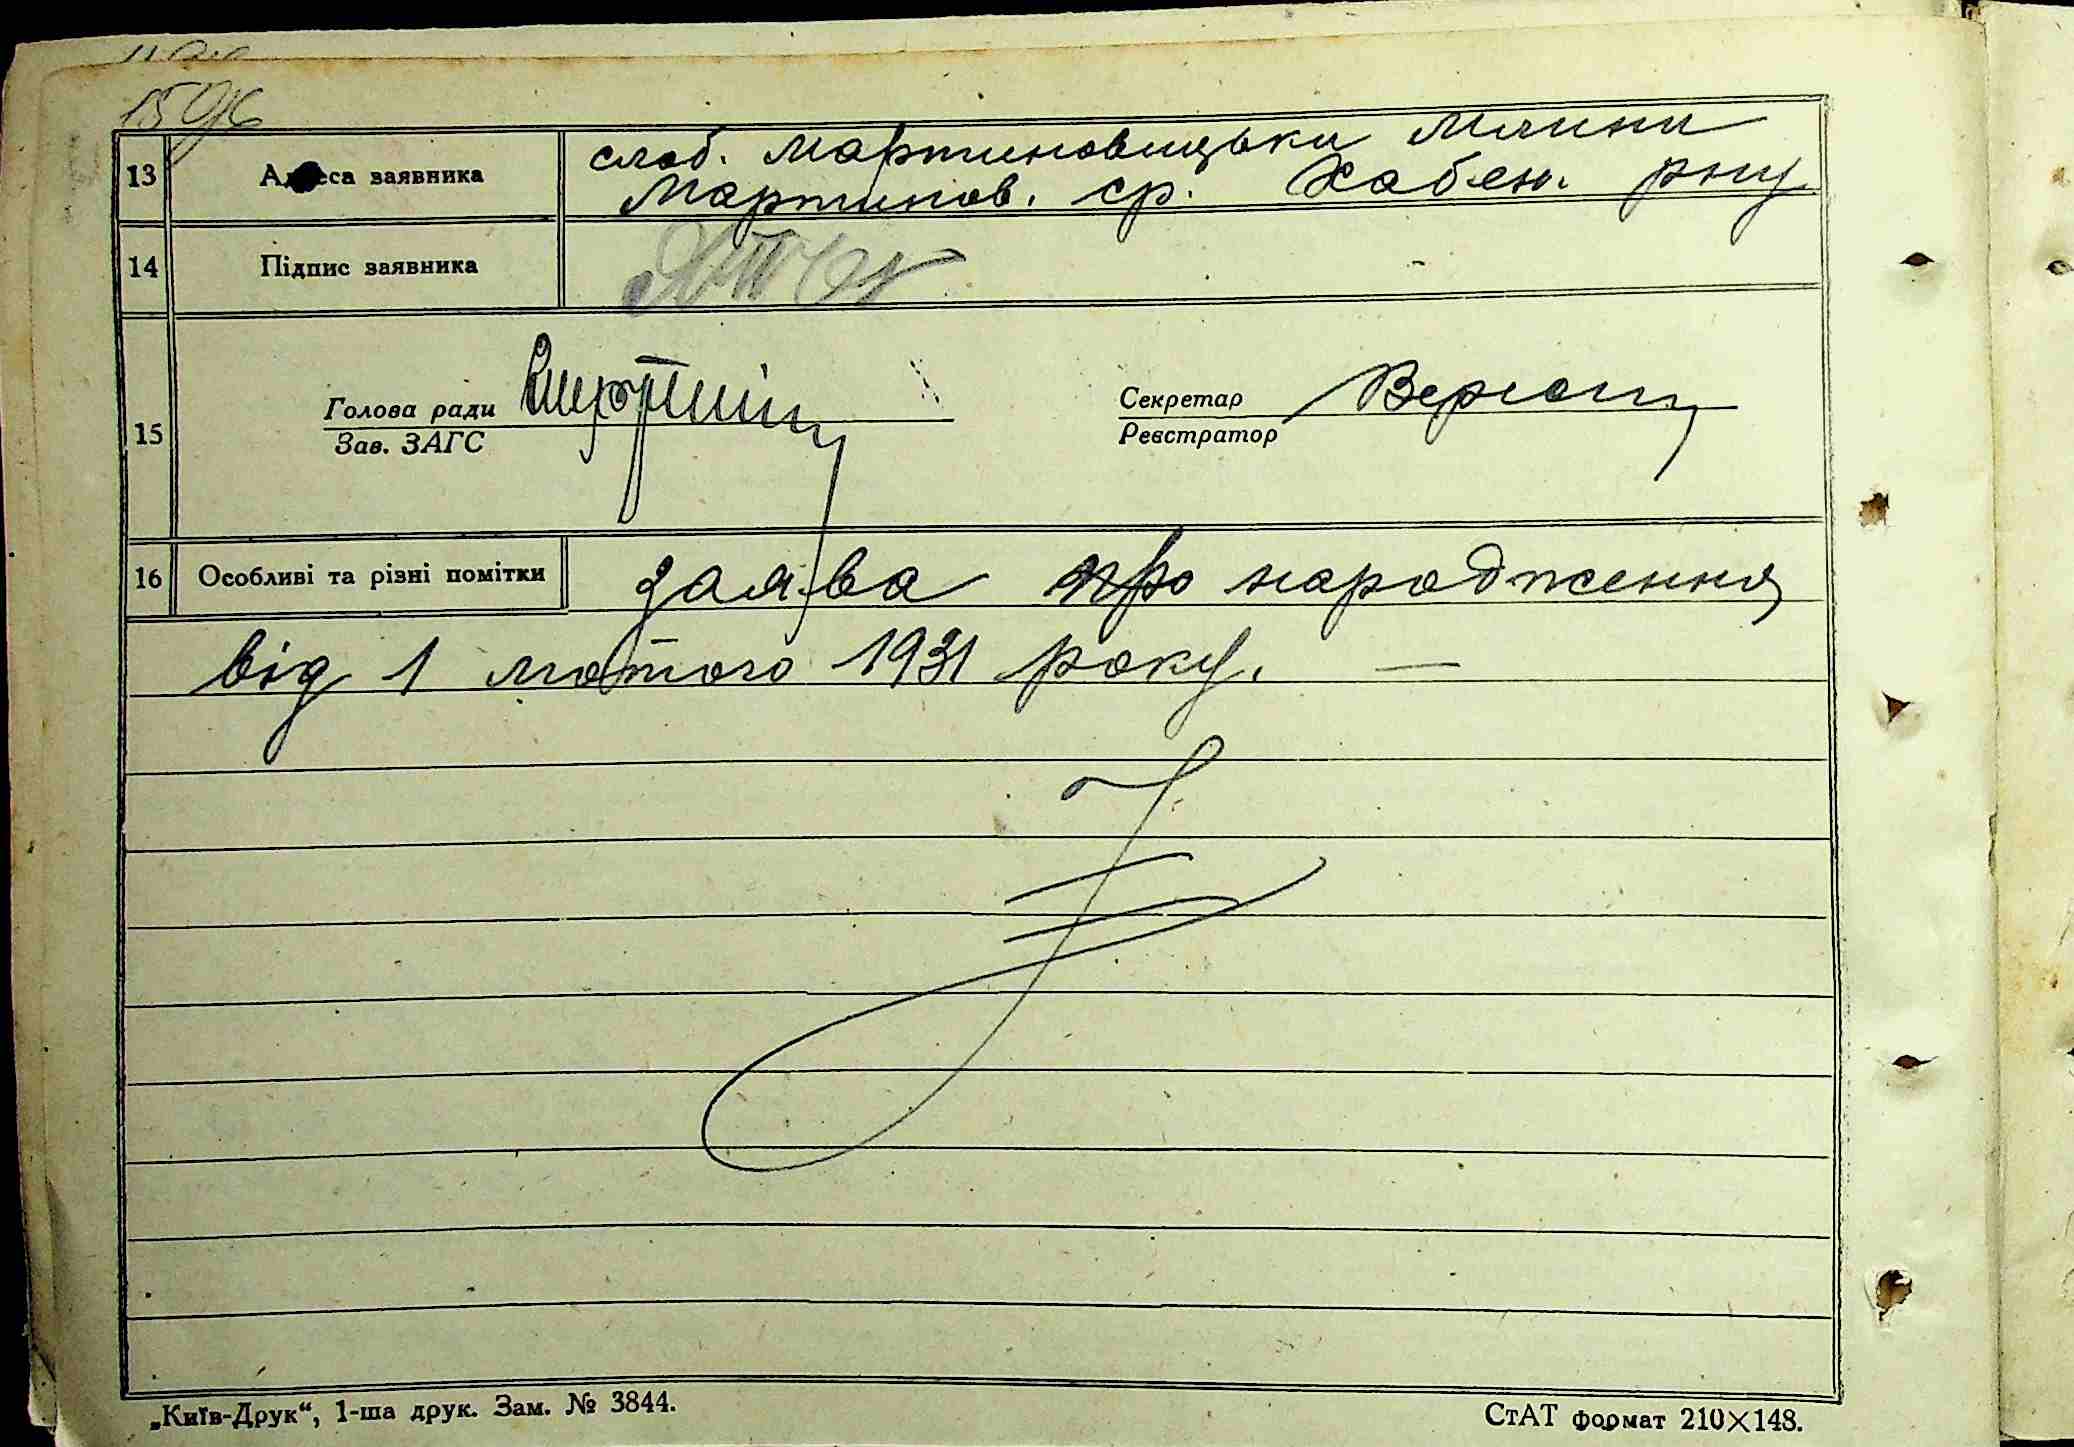 159б
13 Адреса заявника слоб. Мартиновицьки Млини
Мартинов. ср. Хабен. рну
14 Підпис заявника
15 Голова ради Секретар
Зав. ЗАГС Реєстратор
16 Особливі та різні помітки заява про народження
від 1 лютого 1931 року. —
„Київ-Друк“, 1-ша друк. Зам. № 3844. СтАТ формат 210×148.